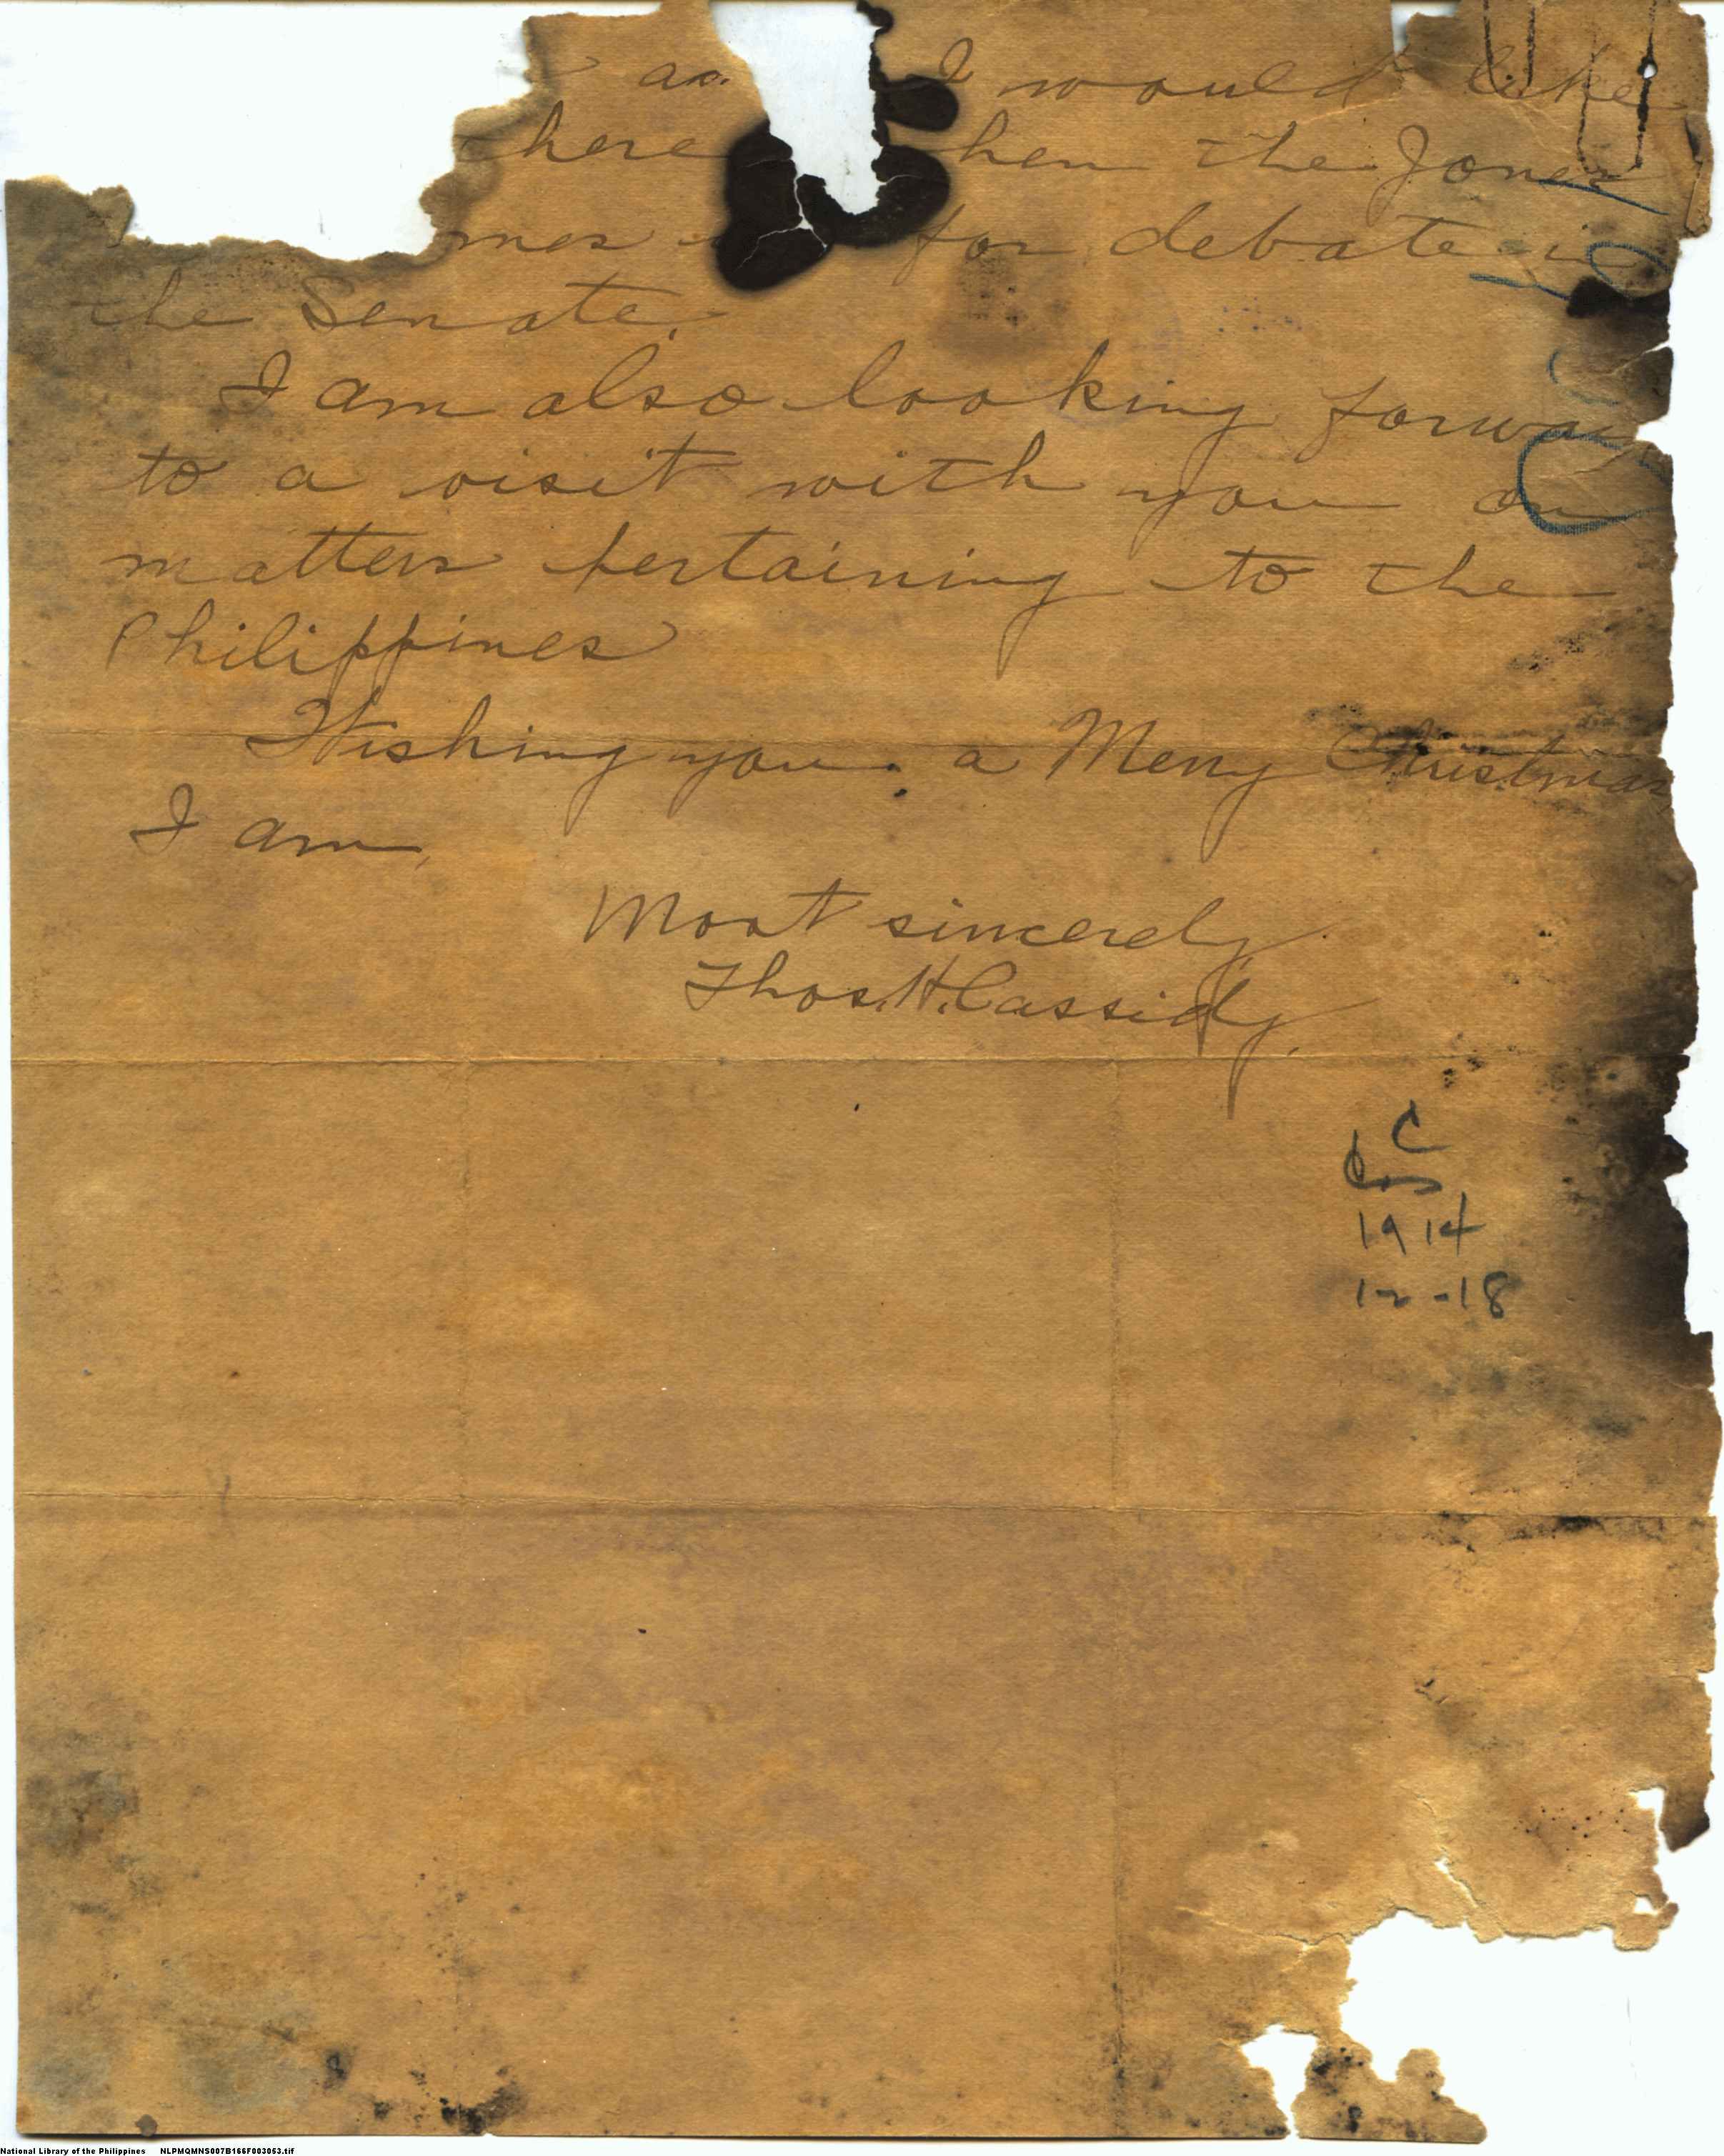 as I would like
here hen the Jones
mes for debate in
the Senate.
I am also looking forwar
to a visit with you on
matters pertaining to the
Philippines
Wishing you a Merry Christmas
I am,
Most sincerely,
Thos. H. Cassidy.
C
1914
12-18
National Library of the Philippines NLPMQMNS007B166F003063.tif